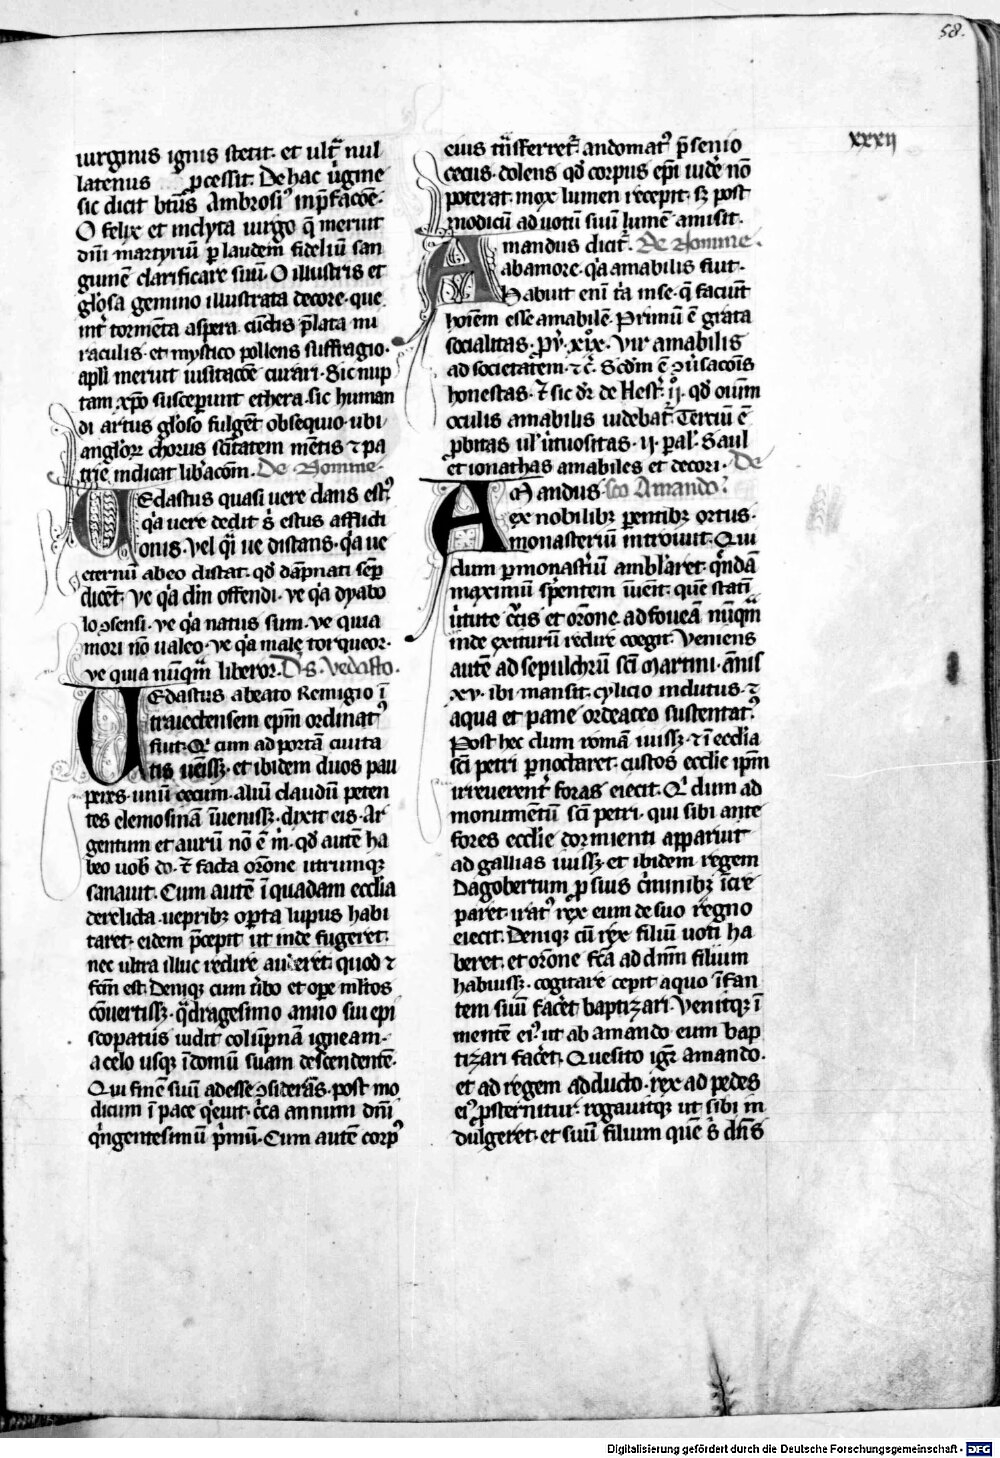 58.
xxxij
uirginis ignis stetit · et ult᷑ nul
latenus ꝓcessit. De hac ũgine
sic dicit btũs Ambrosiꝰ in p̃facõe ·
O felix et inclyta uirgo q̃ meruit
dñi martyriũ ꝑ laudem fideliũ san
guinẽ clarificare suũ O illustris et
gl'osa gemino illustrata decore · que
int̾ tormẽta aspera cũctis p̃lata mi
raculis · et mystico pollens suffragio ·
apl'i meruit uisitacõe curari · Sic nup
tam xp̃o susceperunt ethera · sic human
di artus gl'oso fulgẽt obsequio · ubi
angl'oꝝ chorus sc̃itatem mẽtis ⁊ pa
trie indicat lib'acõm · De Nomine ·
UEdastus quasi uere dans estꝰ
q̾a uere dedit s̾ estus afflicti
onis · Vel q̾i ue distans · q̾a ue
eternũ ab eo distat · qd̾ dãpnati semꝑ
dicẽt · ve q̾a dm̃ offendi · ve q̾a dyabo
lo ꝯsensi · ve q̾a natus sum · ve quia
mori nõ ualeo · ve q̾a male torqueor ·
ve quia nũqm̃ liberor. De s. Vedasto.
UEdastus a beato Remigio ĩ
traiectensem epm̃ ordinatꝰ
fuit · Qi cum ad portã ciuita
tis uẽissꝫ · et ibidem duos pau
peres · unũ cecum · aliũ claudũ peten
tes elemosinã ĩuenissꝫ · dixit eis · Ar
gentum et aurũ nõ ẽ m̾ · qd̾ autẽ ha
beo uob̾ do · ⁊ facta orõne utrumqꝫ
sanauit. Cum autẽ ĩ quadam ecclia
derelicta uepribꝫ oꝑta lupus habi
taret · eidem p̃cepit ut inde fugeret ·
nec ultra illuc redire auderet · quod ⁊
fcm̃ est · Deniqꝫ cum ũbo et oꝑe ml̾tos
cõuertissꝫ · q̃dragesimo anno sui epi
scopatus uidit colũpnã igneam ·
a celo usqꝫ ĩ domũ suam descendentẽ ·
Qui finẽ suũ adesse ꝯsiderãs · post mo
dicum ĩ pace q̾euit · c̾ca annum dñi
q̾ngentesimũ p̾mũ · Cum autẽ corpꝰ
eius t̾nsferret᷑ · andomatꝰ p̃ senio
cecus · dolens qd̾ corpus ep̃i uidẽ nõ
poterat · mox lumen recepit · sꝫ post
modicũ ad uotũ suũ lumẽ amisit ·
Amandus dicit᷑ · De Nomine ·
ab amore · q̾a amabilis fuit ·
Habuit eni t̾a in se · q̃ faciũt
hoiem esse amabilẽ · Primũ ẽ grata
socialitas · ꝓv̾ · xix · Vir amabilis
ad societatem · ⁊c̾ · Scd̾m ẽ ꝯũsacõis
honestas · ⁊ sic dr̾ de Hest̾ · ij · qd̾ oium
oculis amabilis uidebat᷑ · Terciũ ẽ
ꝓbitas ul' ũtuositas · ij · ꝑal' · Saul
et ionathas amabiles et decori · De
AMandus sc̃o Amando.
ex nobilibꝫ parentibꝫ ortus ·
monasteriũ introiuit · Qui
dum ꝑ monast̾iũ ambl̾aret · q̾ndã
maximũ s̾pentem ĩuẽit · quẽ statĩ
ũtute c̾cis et orõne ad foueã nũqm̃
inde exiturũ redire coegit · Veniens
autẽ ad sepulchrũ sc̃i Martini · ãnis
xv · ibi mansit · cylicio indutus · ⁊
aqua et pane ordeaceo sustentatꝰ ·
Post hec dum romã iuissꝫ · ⁊ ĩ ecclia
sc̃i petri ꝑnoctaret · custos ecclie ip̃m
irreuerent̾ foras eiecit · Qi dum ad
monumẽtũ sc̃i petri · qui sibi ante
fores ecclie dormienti apparuit
ad gallias iuissꝫ · et ibidem regem
Dagobertum ꝓ suis c̾minibꝫ ĩcre
paret · iratꝰ rex eum de suo regno
eiecit · Deniqꝫ cũ rex filiũ uoti ha
beret · et orõne fc̃a ad dm̃m filium
habuissꝫ · cogitare cepit a quo ĩfan
tem suũ facẽt baptizari · Venitqꝫ ĩ
mentẽ eiꝰ · ut ab amando eum bap
tizari facẽt · Quesito ig̾r amando ·
et ad regem adducto · rex ad pedes
eiꝰ ꝓsternitur · rogauitqꝫ ut sibi in
dulgeret · et suũ filium quẽ s̾ dñs
Digitalisierung gefördert durch die Deutsche Forschungsgemeinschaft · DFG